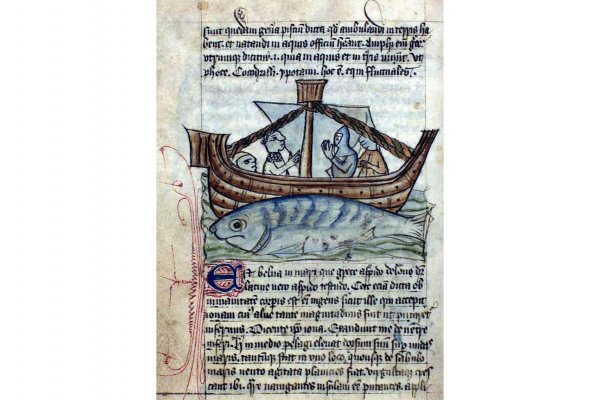 sunt quedam gen̄a pisciū dicta qd' ambulandi in terris ha
bent. et natandi in aquis officiū hēant. Amphi em̄
dicitur .i. quia in aquis et in tr̄is uiuūt. Vt
phoce. Cocodrilli. ypotami. hoc ē. equi fluctuales.
Est belua in mari que grece aspido delone dr̄
latine uero aspido testudo. Cete eciā dicta ob
inmanitatē corpis est em̄ ingens sicut ille qui accepit
ionam cuiꝰ aluꝰ tante magnitudinis fuit ut putaret
infernus. Dicente ip̄o iona. Exaudiuit me de uentre
inferi. in medio pelagi eleuat dorsum suū sup undas
maris. tantūque stat in uno loco. quousque de sabulo
maris uento agitata planicies fiat. cres
cant ibi. nauigantes insulam eē putantes. appli